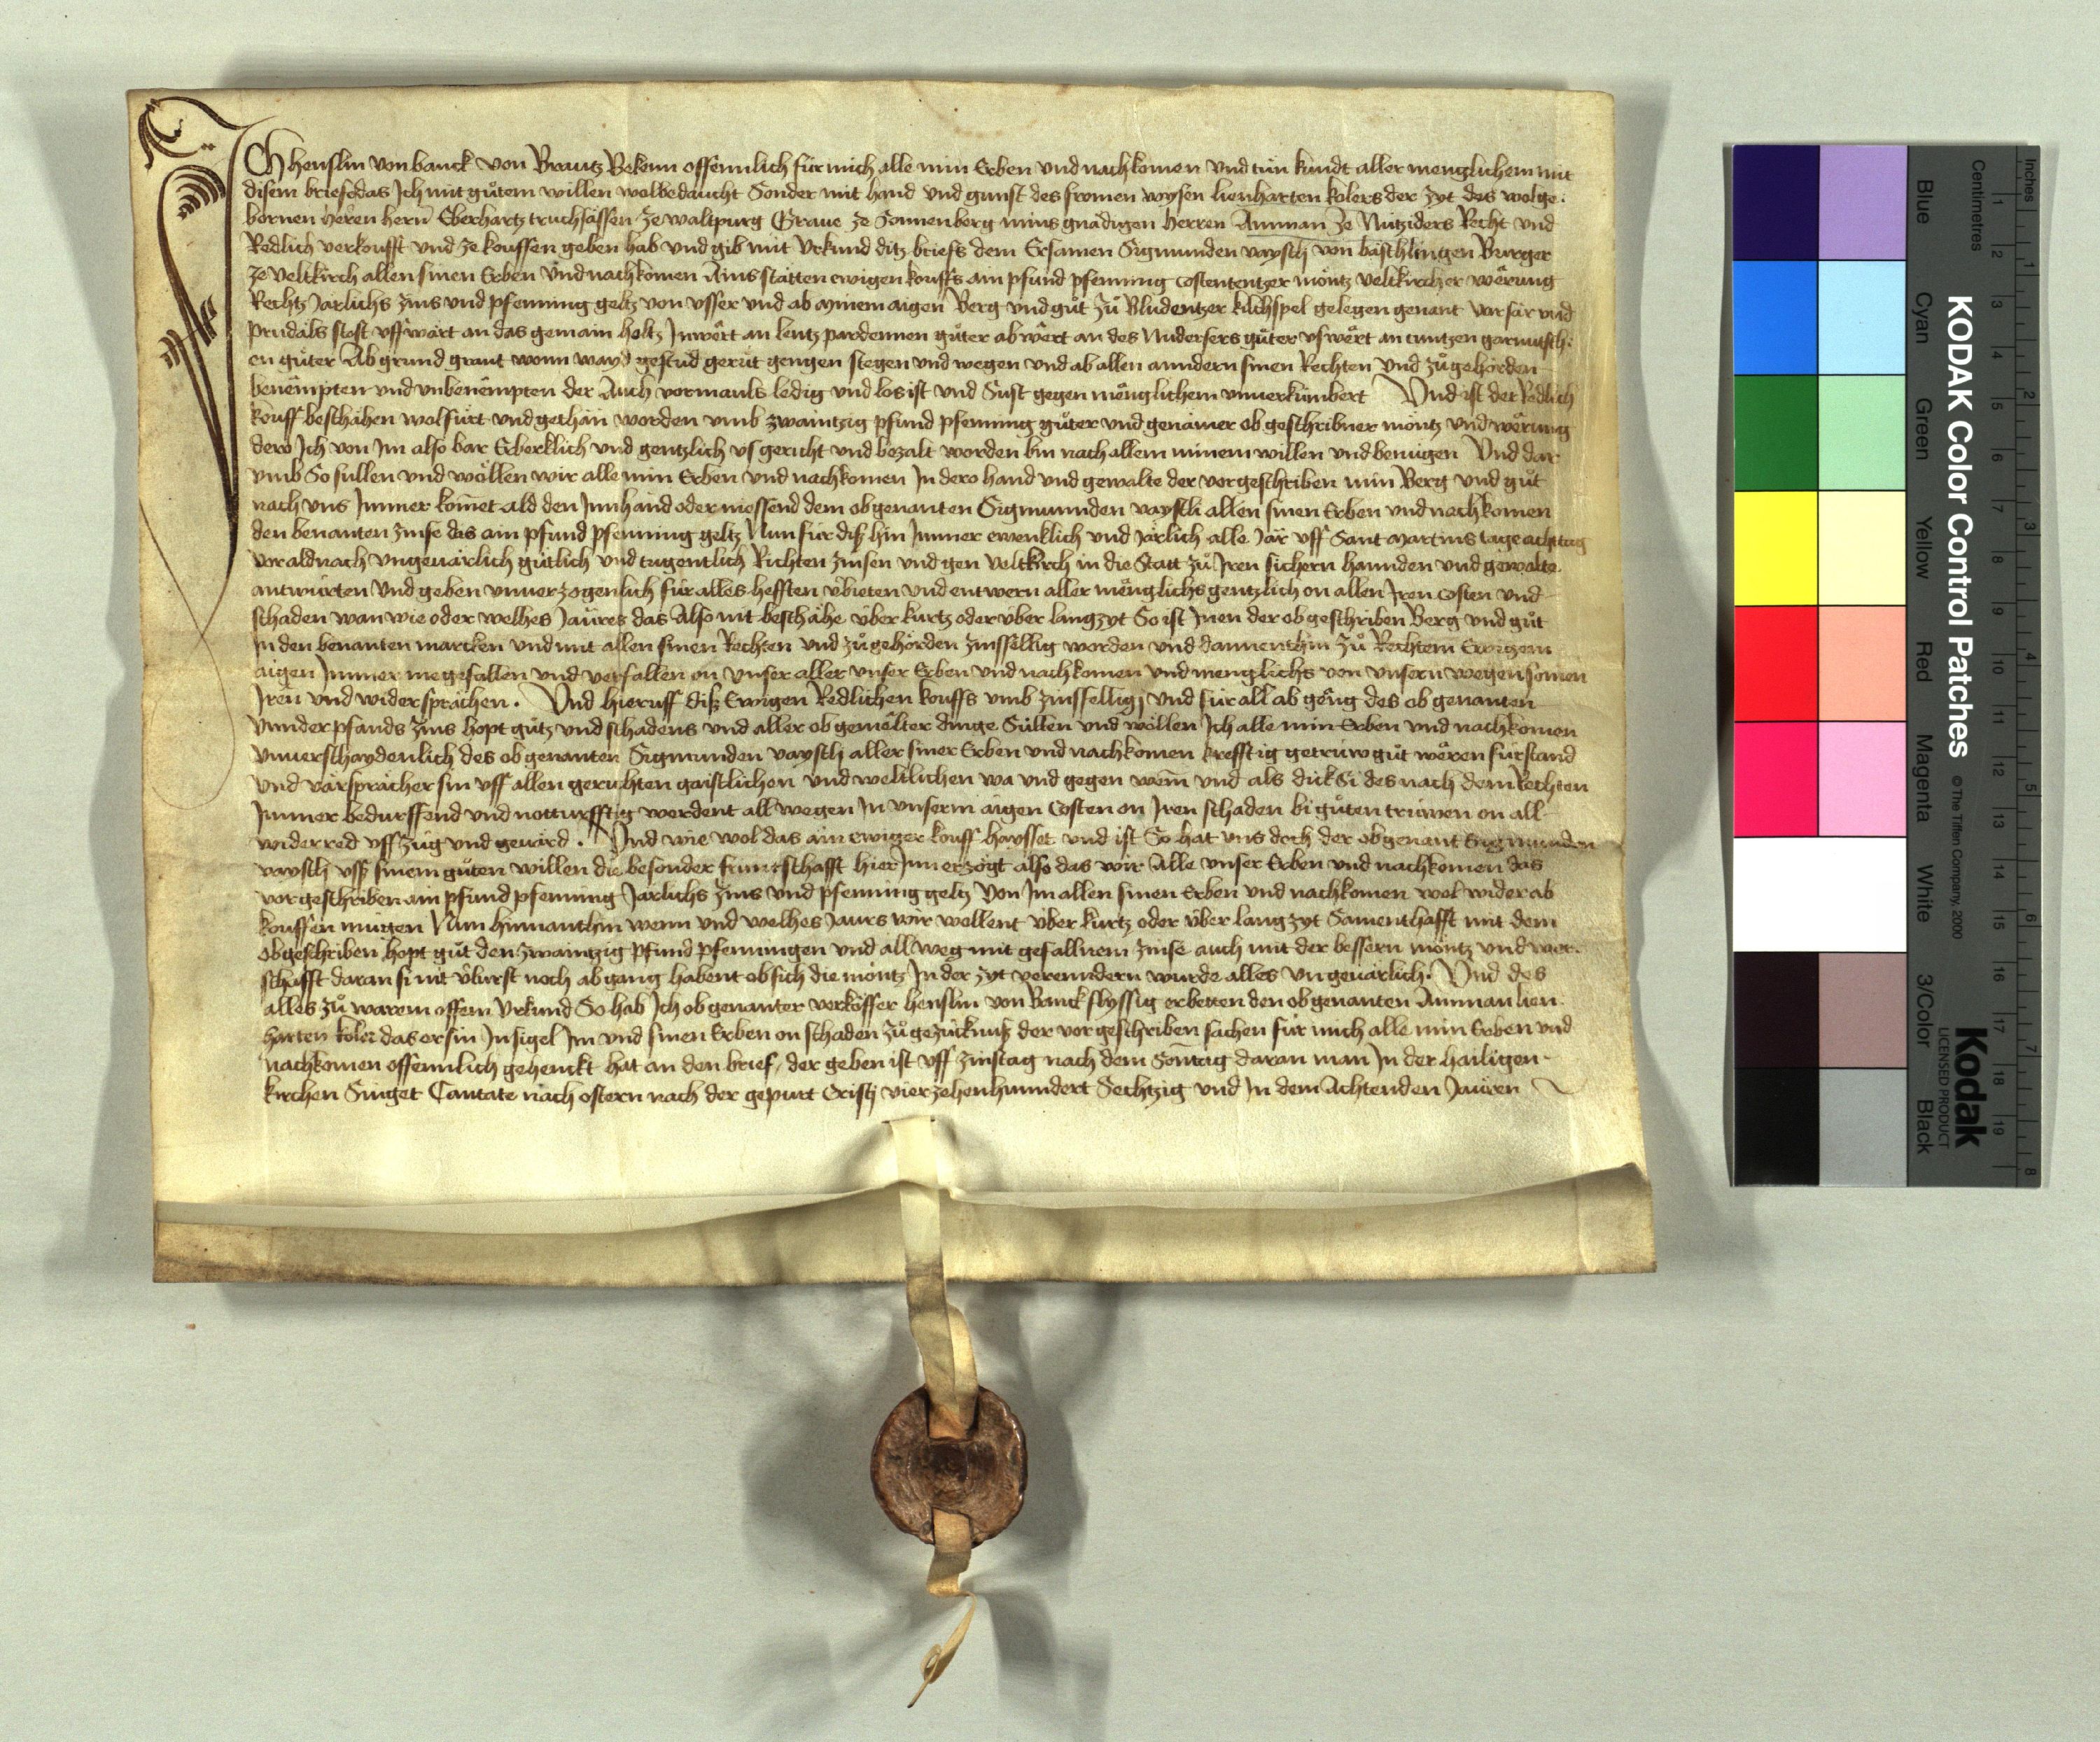 Ich henslin von banck von Brautz Bekenn offennlich für mich alle min Erben und nachkomen und tün kundt aller menglichem mit
disem briefe das Ich mit gůtem willen wolbedaucht Sonder mit hand und gunst des fromen wysen lienharten kolers der zyt des wolge-
bornen heren hern Eberhartz truchsässen ze waltpurg Graue ze Sonnenberg mins gnädigen herren Amman ze Nütziders Recht und
Redlich verkoufft und ze kouffen geben hab und gib mit Urkund ditz briefs dem Ersamen Sigmunden vaystli von bäschlingen Burger
ze veltkirch allen sinen Erben und nachkomen Ains stätten ewigen kouffs ain pfund pfenning costentzer möntz veltkircher werung
Rechtz Järlichs zins und pfenning geltz von usser und ab minem aigen Berg und gůt zů Bludentzer kilchspel gelegen genant vorsär und
prudäls stost uffwärt an das gemain holtz Inwërt an lentz pardennen gůter abwërt an des Nudersers gůter uswërt an cuntzen garnutsch-
en gůter Ab grund graut wonn wayd gestüd gerüt gengen stegen und wegen und ab allen anndern sinen Rechten und zůgehörden
benëmpten und unbenëmpten der Auch vormauls ledig und los ist und Sust gegen mënglichem unuerkümbert Und ist der Redlich
kouff beschähen wolfürt und gethän worden umb zwaintzig pfund pfenning gůter und genämer obgeschribner möntz und werung
dero Ich von Im also bar Erberklich und gentzlich usgericht und bezalt worden bin nach allem minem willen und benügen Und dar
umb So süllen und wöllen wir alle min Erben und nachkomen In dero hand und gewalte der vorgeschriben min Berg und gůt
nach uns Immer kömet ald den Innhand oder niessend dem obgenanten Sigmunden vaystli allen sinen Erben und nachkomen
den benanten zinse des ain pfund pfenning geltz Nun für dis hin Immer ewenklich und järlich alle Jär uff Sant martins tage acht tag
vor ald nach ungeuärlich gütlich und tugentlich Richten zinsen und gen veltkirch in die Statt zů Iren sichern hannden und gewalte
antwürten und geben unuerzogenlich für alles hefften ubieten und entwern aller mënglichs gentzlich on allen Iren costen und
schaden wan wie oder welhes Jaures das Also nit beschähe über kurtz oder über lang zyt So ist Inen der obgeschriben Berg und gůt
in den benanten marcken und mit allen sinen Rechten und zůgehörden zinsfellig worden und dannenthin zů Rechtem Ewigem
aigen Immer me gefallen und verfallen on Unser aller unser Erben und nachkomen und menglichs von unsern wegen somen
Jren und widersprächen. Und hieruff dis Ewigen Redlichen kouffs umb zinsfellig und für all abgëng des obgenanten
unnderpfands zins hoptgůtz und schadens und aller obgemelter dinge Süllen und wöllen Ich alle min Erben und nachkomen
unuerschaydenlich des obgenanten Sigmunden vaystli aller siner Erben und nachkomen krefftig getrüw gůt wëren fürstand
und värsprächer sin uff allen gerichten gaistlichen und weltlichen wa und gegen wem und als dick Si des nach dem Rechten
Immer bedurffend und notturfftig werdent allwegen In unserm aigen Costen on Iren schaden bi gůten trüwen on all
widerred uffzüg und geuärd. Und wie wol das ain ewiger kouff haysset und ist So hat uns doch der obgenant Sigmunden
vaystli uss sinem gůten willen die besonder fruntschafft hier Inn erzögt also das wir Alle unser Erben und nachkomen das
vorgeschriben ain pfund pfenning Järlichs zins und pfenning geltz Von Im allen sinen Erben und nachkomen wol wider ab
kouffen mügen Nun hinnanthin wenn und welhes Jaurs wir wollent über kurtz oder über lang zyt Samenthafft mit dem
obgeschriben hoptgůt den zwaintzig pfund pfenningen und allweg mit gefallnem zinse auch mit der bessern möntz und wer-
schafft daran si nit vlurst noch abgang habent ob sich die möntz In der zyt verenndern wurde alles Ungeuärlich. Und des
alles zů warem offem Urkund So hab Ich obgenanter verköffer henslin von Banck flyssig erbetten den obgenanten Amman lien-
harten koler das er sin Insigel Im und sinen Erben on schaden zů gezücknuß der vorgeschriben sachen für mich alle min Erben und
nachkomen offennlich gehenckt hat an den brief, der geben ist uff zinstag nach dem Sonntag daran man In der hailigen
kirchen Singet Cantate nach ostern nach der gepurt Cristi vierzehenhunndert Sechtzig und In dem Achtenden Jauren
KODAK Color Control Patches © The Tiffen Company, 2000
Kodak
LICENSED PRODUCT
Blue Cyan Green Yellow Red Magenta White 3/Color Black
Inches 1 2 3 4 5 6 7 8
Centimetres 1 2 3 4 5 6 7 8 9 10 11 12 13 14 15 16 17 18 19